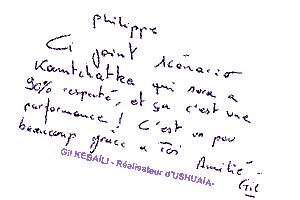 Philippe
Ci joint scénario
Kamtchatka qui sera a
90% respecté, et ça c'est une
performance ! C'est un peu
beaucoup grâce a Toi Amitié
Gil
Gil KEBAÏLI - Réalisateur d'USHUAÏA-